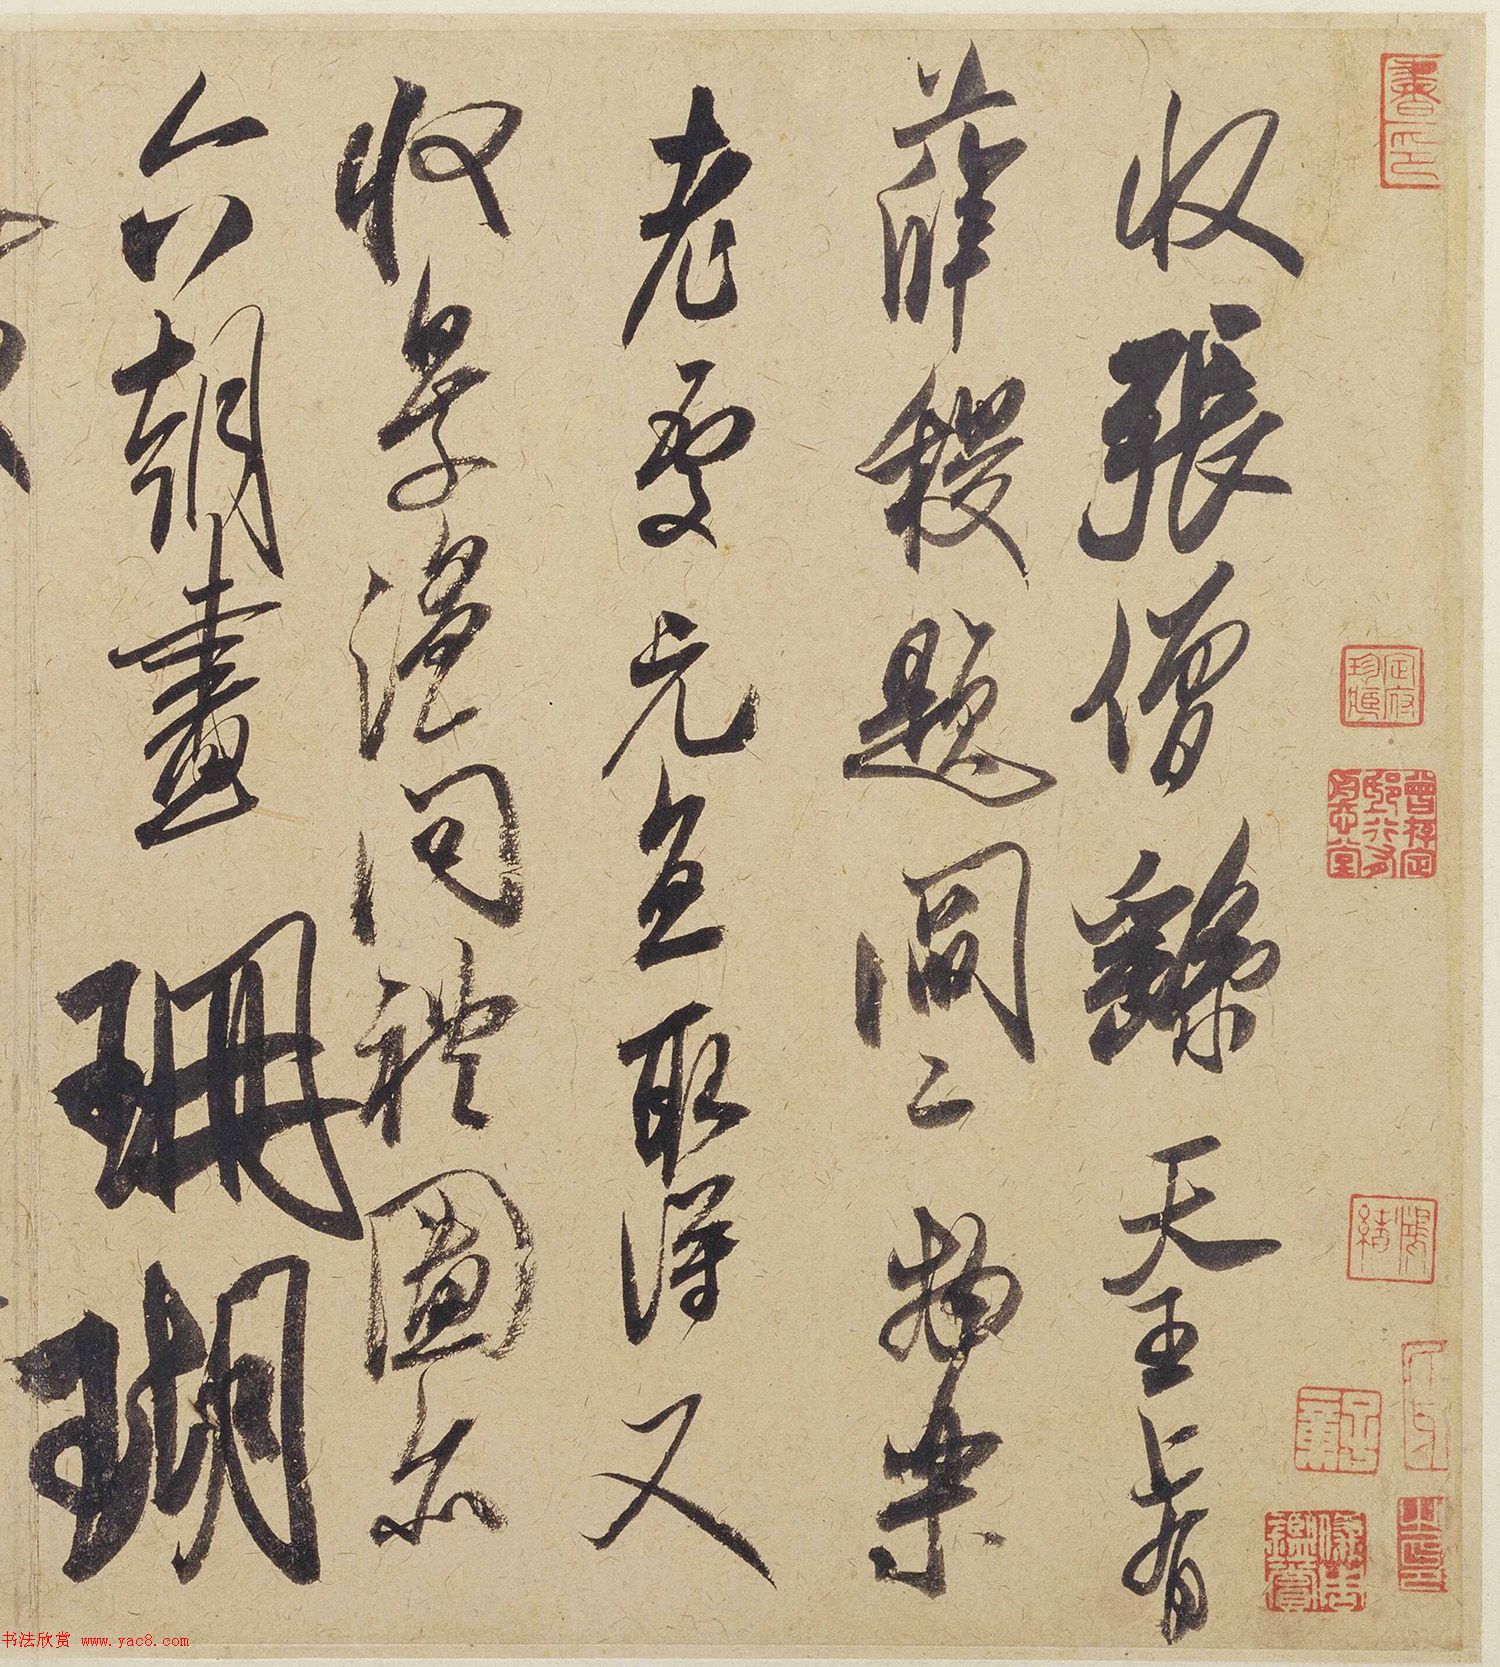 收張僧繇天王上有
薛稷題閻二物樂
老處元直取得又
收景溫問禮圖亦
六朝畫珊瑚
定府珍藏
书法欣赏 www.yac8.com